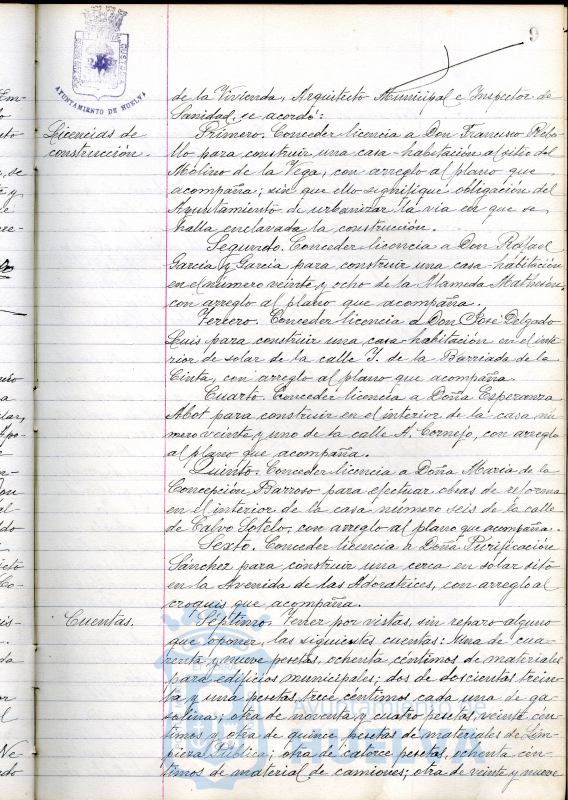 9
AYUNTAMIENTO DE HUELVA
de la Vivienda, Arquitecto Municipal e Inspector de
Sanidad se acordó:
Licencias de
construcción.
Primero. Conceder licencia a Don Francisco Rebo-
llo para construir una casa-habitación al sitio del
Molino de la Vega, con arreglo al plano que
acompaña; sin que ello signifique obligación del
Ayuntamiento de urbanizar la vía en que se
halla enclavada la construcción.
Segundo. Conceder licencia a Don Rafael
García y García para construir una casa-habitación
en el número veinte y ocho de la Alameda
con arreglo al plano que acompaña.
Tercero. Conceder licencia a Don José Delgado
Luis para construir una casa-habitación en el inte-
rior de solar de la calle Y. de la Barriada de la
Cinta, con arreglo al plano que acompaña.
Cuarto. Conceder licencia a Doña Esperanza
Abot para construir en el interior de la casa nú-
mero veinte y uno de la calle A. Cornejo, con arreglo
al plano que acompaña.
Quinto. Conceder licencia a Doña María de la
Concepción Barroso para efectuar obras de reforma
en el interior de la casa número seis de la calle
de Calvo Sotelo, con arreglo al plano que acompaña.
Sexto. Conceder licencia a Doña Purificación
Sánchez para construir una cerca en solar sito
en la Avenida de las Adoratrices, con arreglo al
croquis que acompaña.
Cuentas.
Séptimo. Tener por vistas, sin reparo alguno
que oponer, las siguientes cuentas: Una de cua-
renta y nueve pesetas, ochenta céntimos de materiales
para edificios municipales; dos de doscientas trein-
ta y una pesetas, trece céntimos cada una de ga-
solina; otra de noventa y cuatro pesetas, veinte cén-
timos y otra de quince pesetas de materiales de Lim-
pieza Pública; otra de catorce pesetas, ochenta cén-
timos de material de camiones; otra de veinte y nueve
Ayuntamiento de